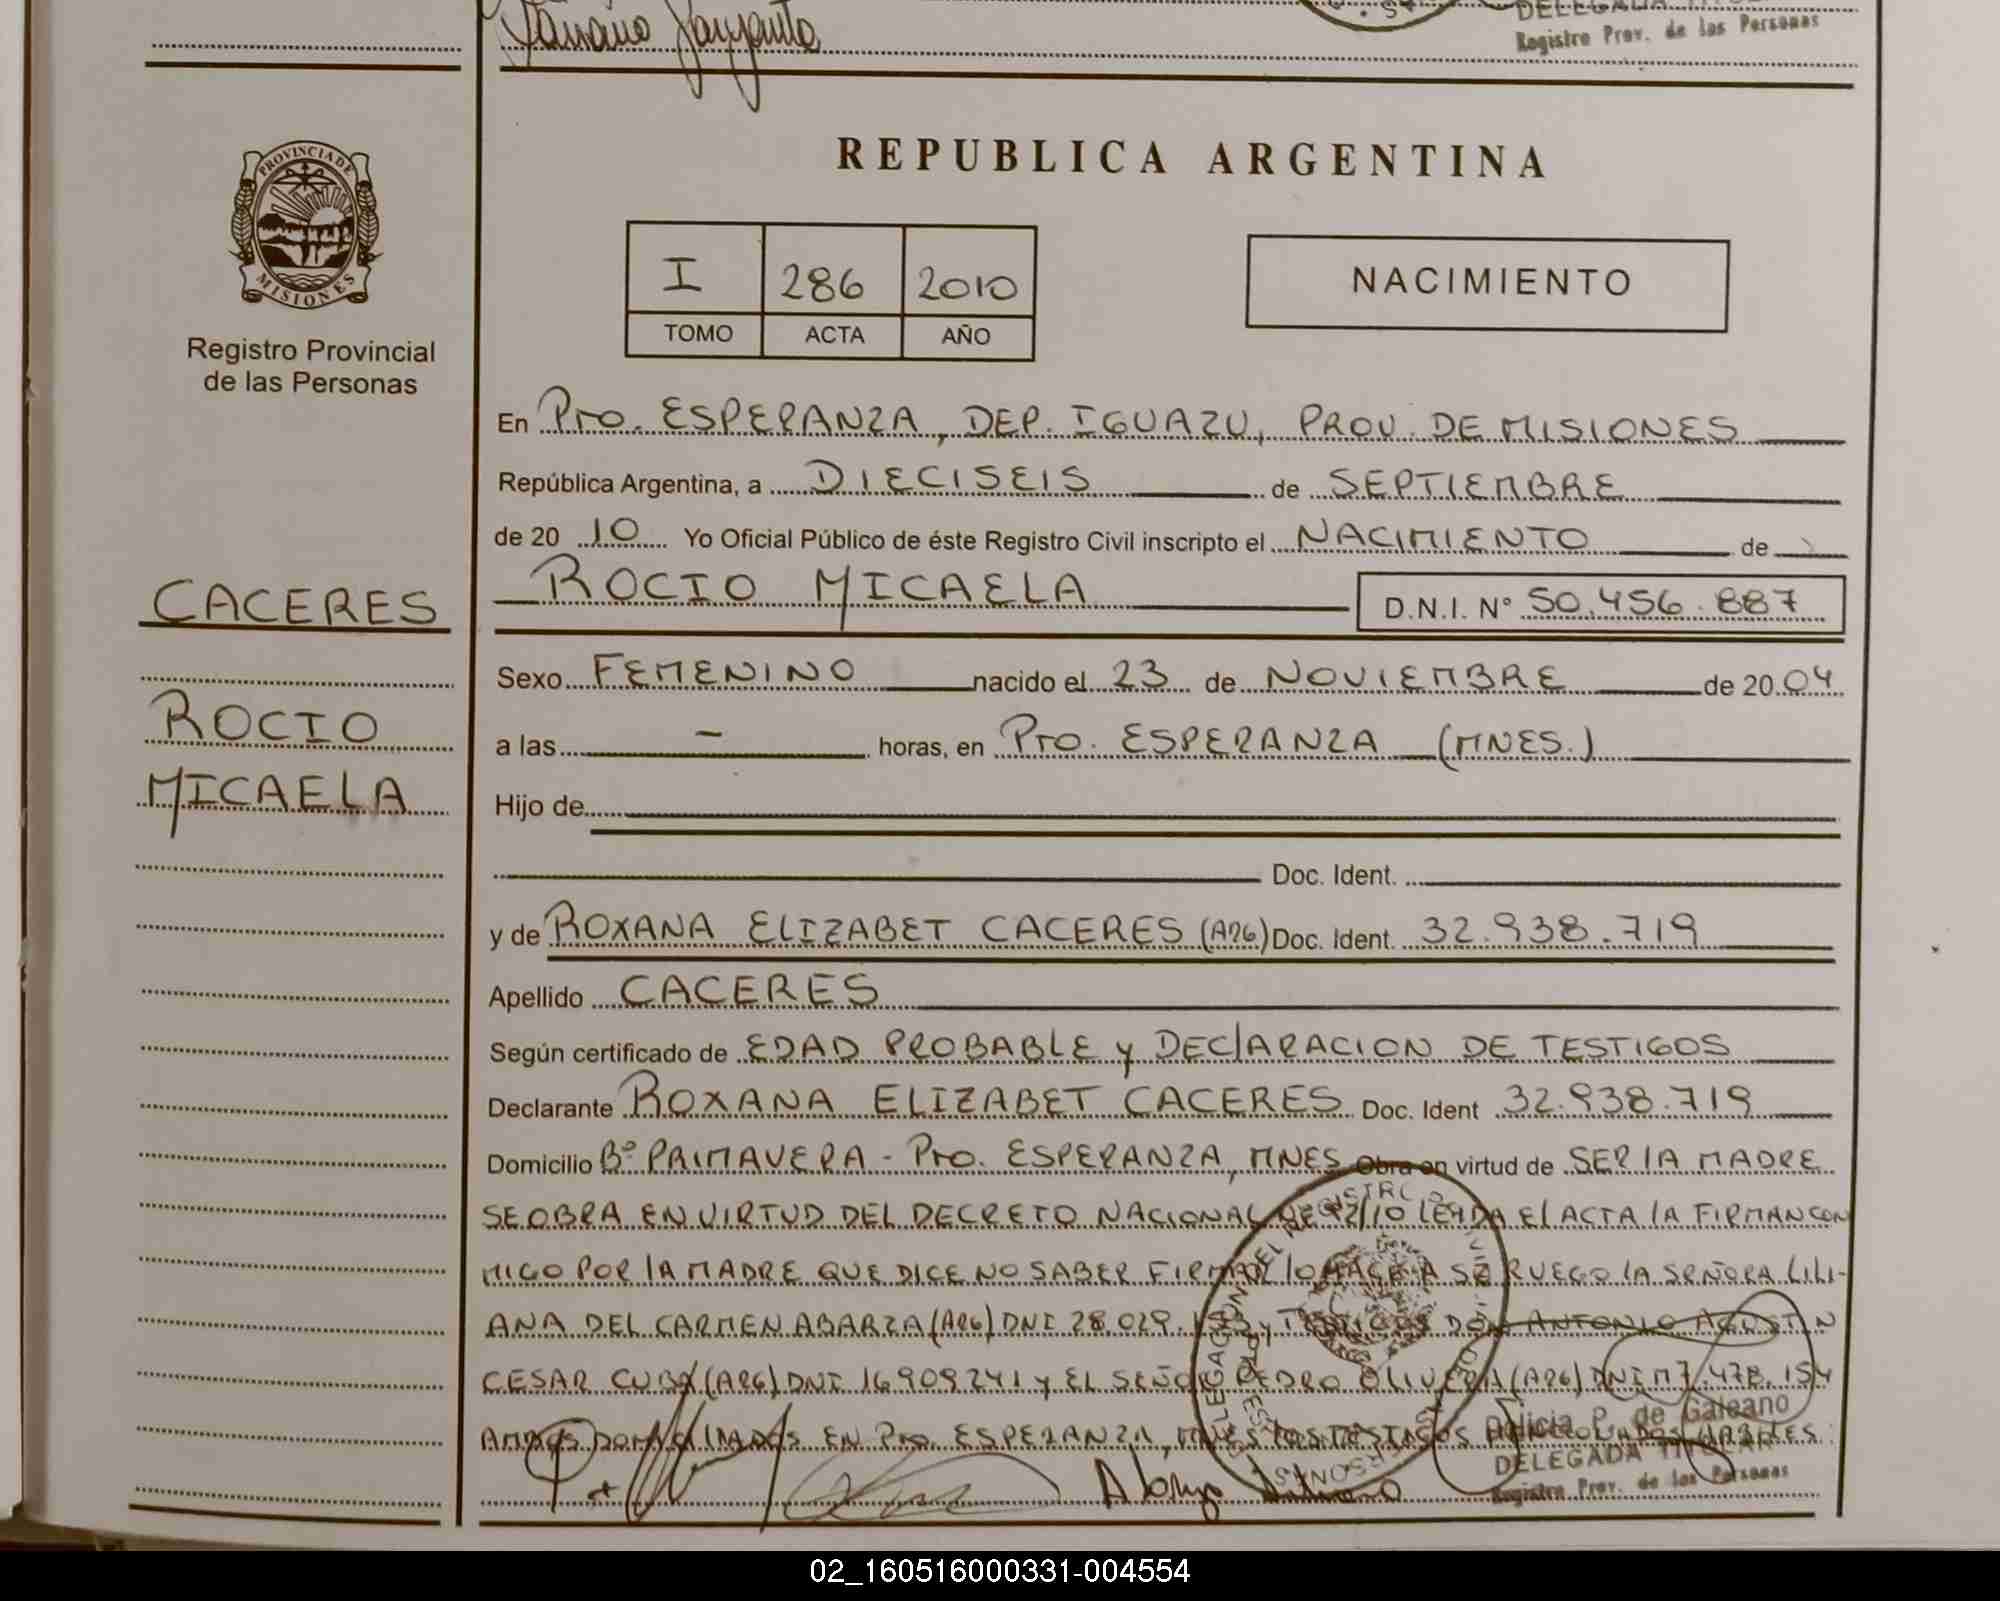 DELEGADA TITULAR
Registro Prov. de las Personas
PROVINCIA DE
MISIONES
Registro Provincial
de las Personas
REPUBLICA ARGENTINA
I 286 2010
TOMO ACTA AÑO
NACIMIENTO
En Pto. ESPERANZA, DEP. IGUAZU, PROV. DE MISIONES
República Argentina, a DIECISEIS de SEPTIEMBRE
de 20 10 Yo Oficial Público de éste Registro Civil inscripto el NACIMIENTO de
ROCIO MICAELA D.N.I. N° 50.456.887
CACERES
ROCIO
MICAELA
Sexo FEMENINO nacido el 23 de NOVIEMBRE de 20 04
a las - horas, en Pto. ESPERANZA (MNES.)
Hijo de
Doc. Ident.
y de ROXANA ELIZABET CACERES (ARG) Doc. Ident. 32.938.719
Apellido CACERES
Según certificado de EDAD PROBABLE y DEClARACION DE TESTIGOS
Declarante ROXANA ELIZABET CACERES Doc. Ident 32.938.719
Domicilio B° PRIMAVERA - Pto. ESPERANZA, MNES Obra en virtud de SER lA MADRE
SE OBRA EN VIRTUD DEL DECRETO NACIONAL 92/10 LEIDA El ACTA lA FIRMAN CON
MIGO POR lA MADRE QUE DICE NO SABER FIRMAR lO HACE A SU RUEGO LA SEÑORA LILI-
ANA DEL CARMEN ABARZA (ARG) DNI 28.029. y TESTIGOS DON ANTONIO AGUSTIN
CESAR CUBA (ARG) DNI 16909241 y EL SEÑOR PEDRO OLIVERA (ARG) DNI M7.478.154
AMBOS DOMICILIADOS EN Pto. ESPERANZA, MNES lOS TESTIGOS
Alicia P. de Galeano
DELEGADA TITULAR
Registro Prov. de las Personas
02_160516000331-004554